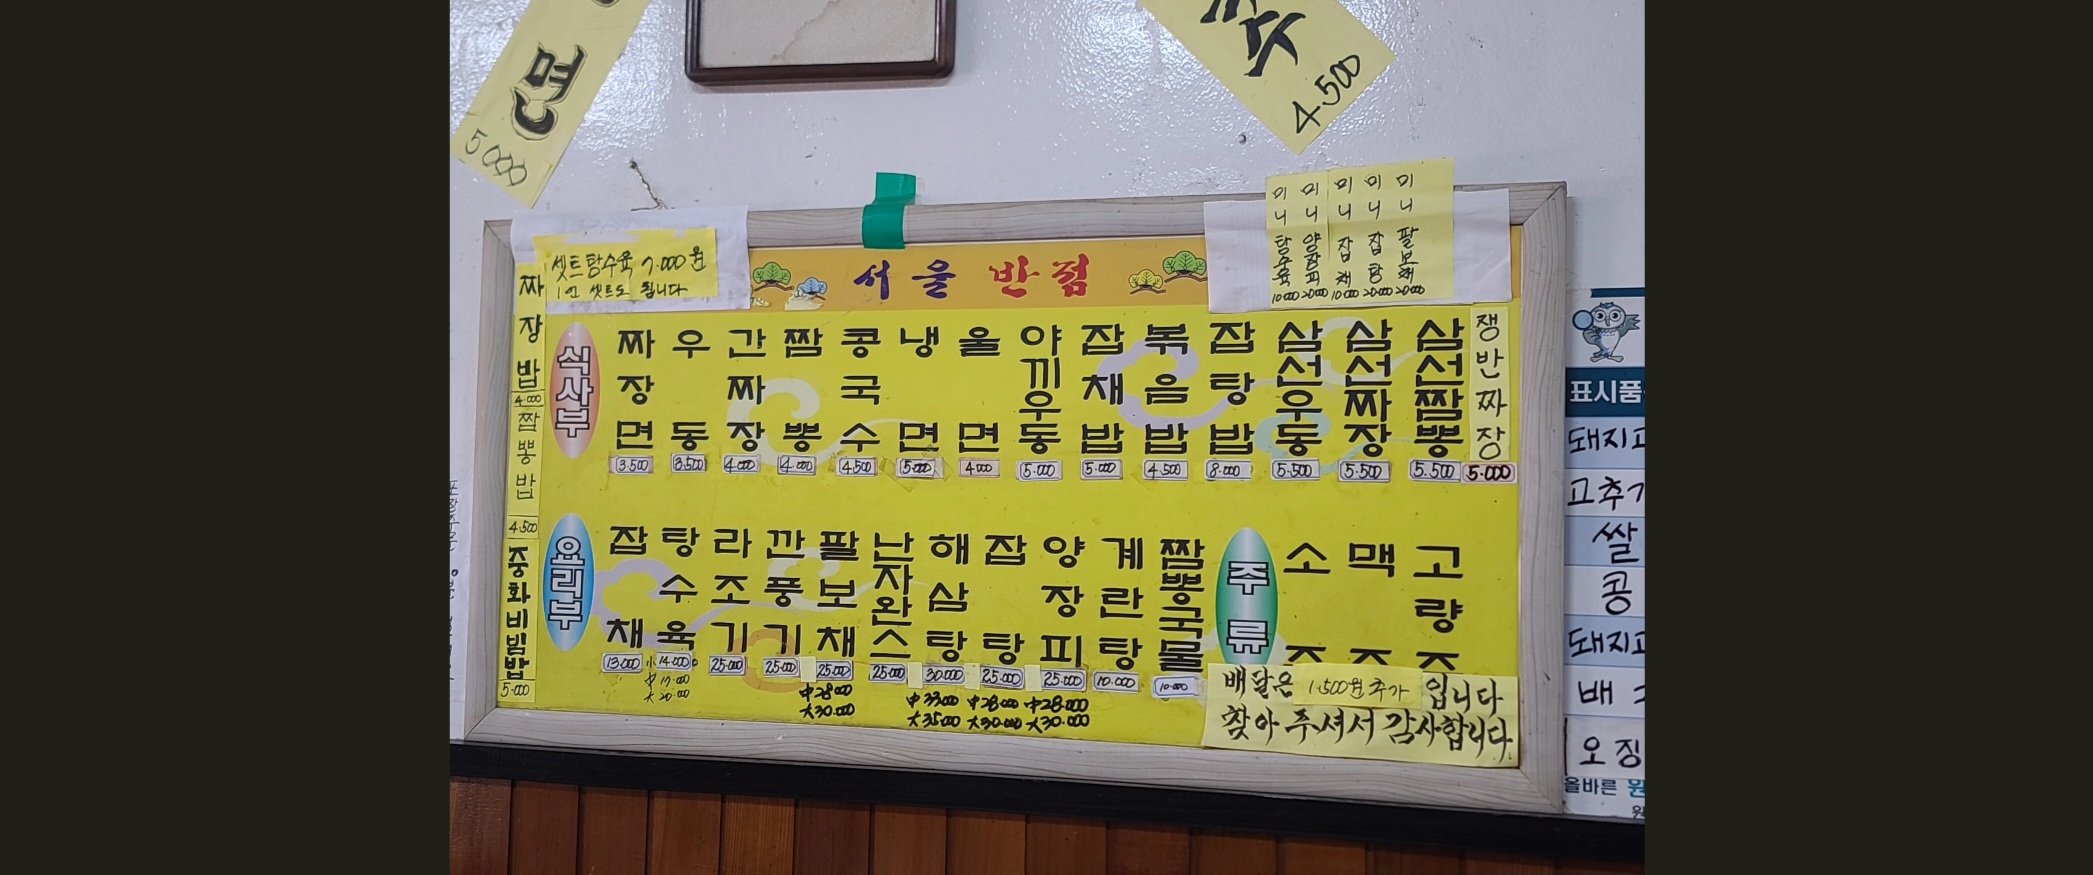 면
5000
주
4.500
셋트탕수육 7.000원
1인 셋트도 됩니다
서울반점
미니탕수육 10000
미니양장피 20000
미니잡채 10000
미니잡탕 20000
미니팔보채 20000
짜장밥 4.000
짬뽕밥 4.500
중화비빔밥 5.000
식사부
짜장면 3.500
우동 3.500
간짜장 4.000
짬뽕 4.000
콩국수 4.500
냉면 5.000
울면 4.000
야끼우동 5.000
잡채밥 5.000
볶음밥 4.500
잡탕밥 8.000
삼선우동 5.500
삼선짜장 5.500
삼선짬뽕 5.500
쟁반짜장 5.000
요리부
잡채 13.000
탕수육 小 14.000
中 17.000
大 20.000
라조기 25.000
깐풍기 25.000
팔보채 25.000
中 28.000
大 30.000
난자완스 25.000
해삼탕 30.000
中 33.000
大 35.000
잡탕 25.000
中 28.000
大 30.000
양장피 25.000
中 28.000
大 30.000
계란탕 10.000
짬뽕국물 10.000
주류
소주
맥주
고량주
배달은 1.500원 추가 입니다
찾아 주셔서 감사합니다
표시품
돼지고
고추가
쌀
콩
돼지고
배
오징
올바른 원